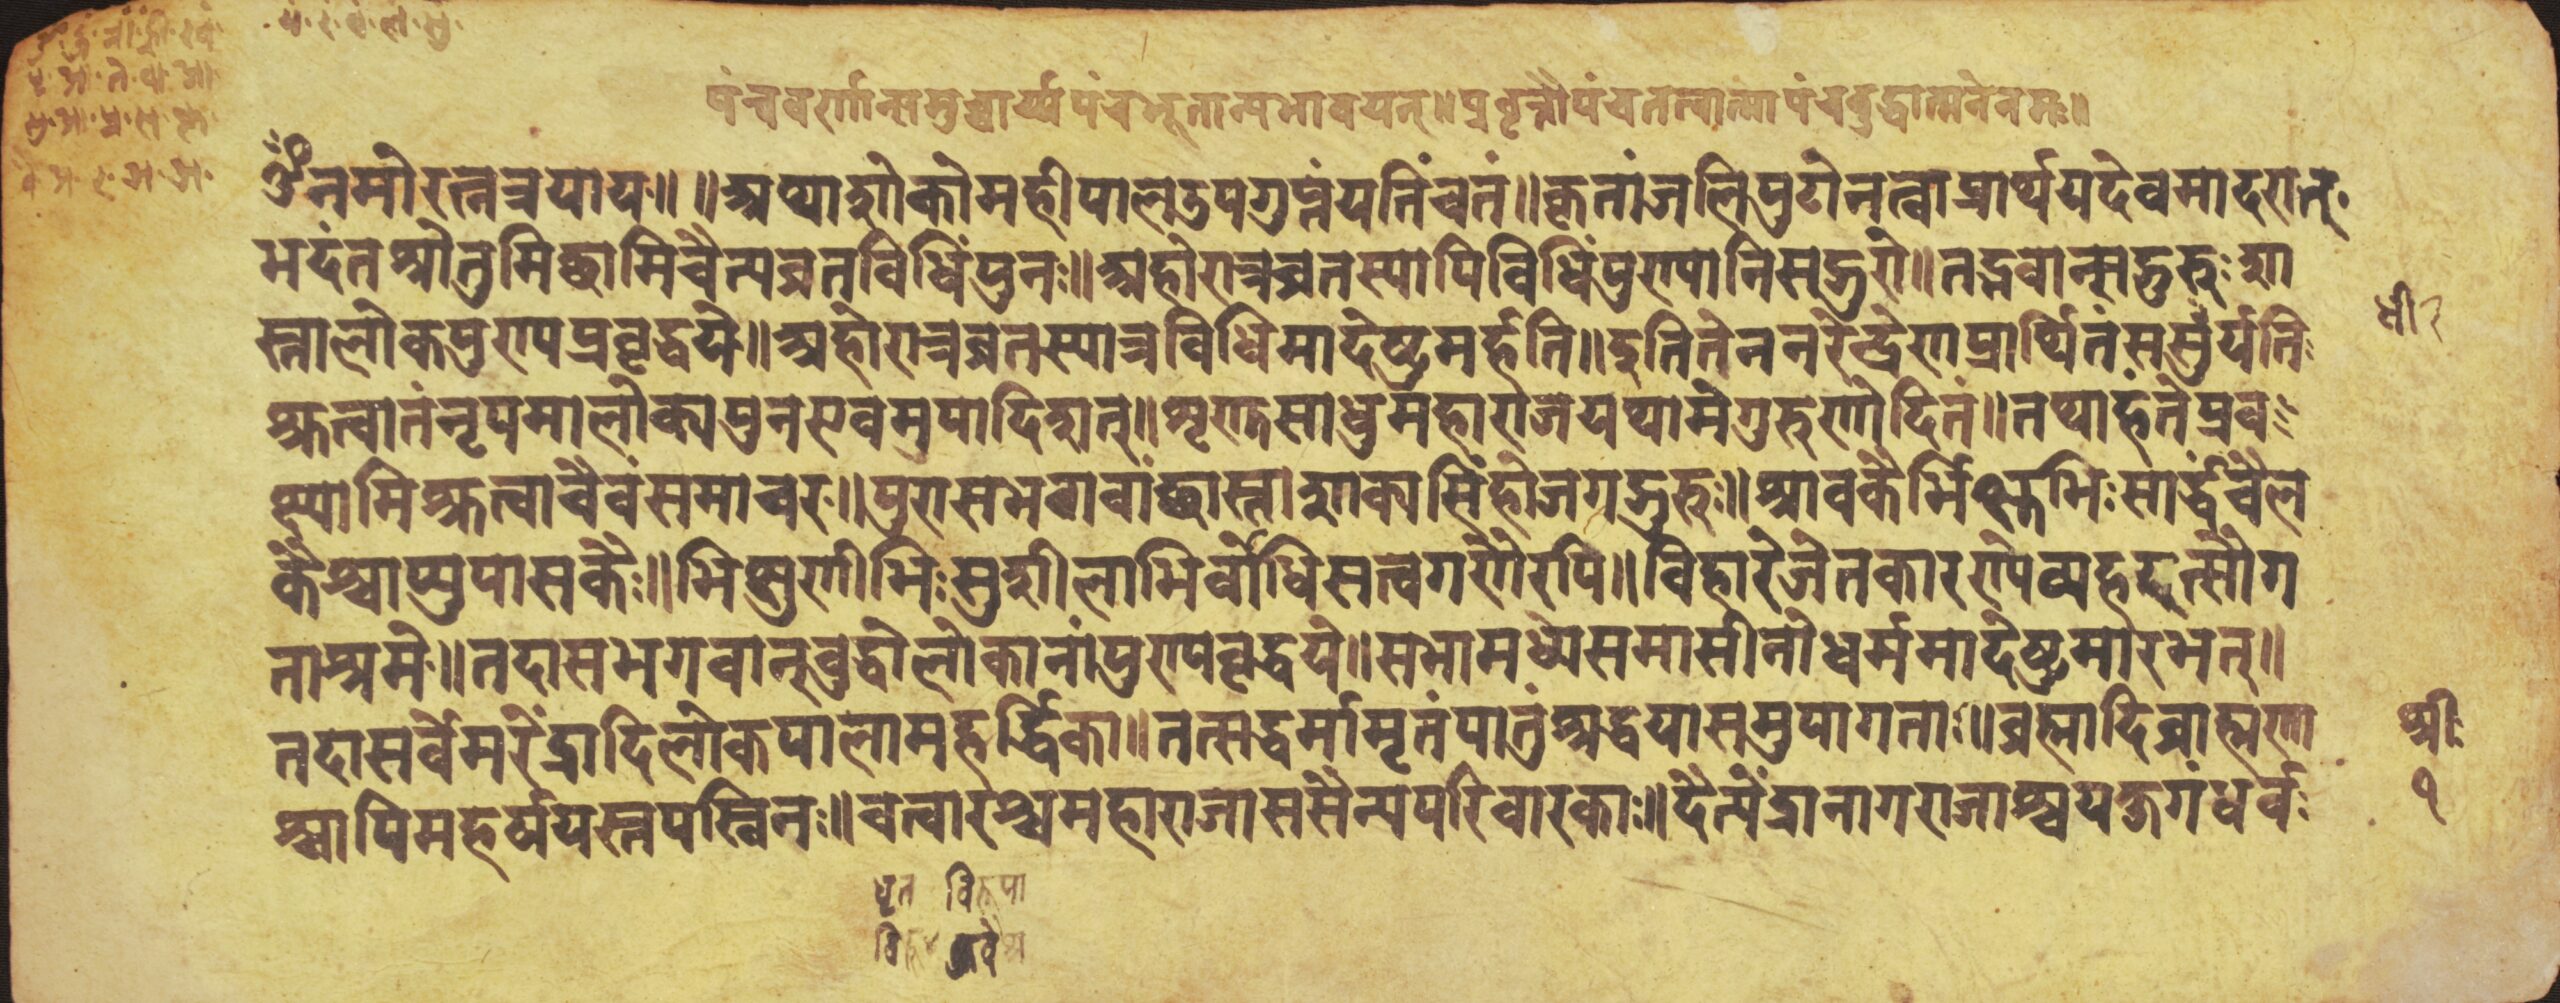 पंचवर्णान्समुच्चार्य्य पंचभूतान्प्रभावयन्॥
ॐ नमो रत्नत्रयाय॥ ॥ अथाशोको महीपाल उपगुप्तं यतिं च तं॥ कृतांजलिपुटो नत्वा प्रार्थयदेवमादरात्
भदंत श्रोतुमिच्छामि चैत्यव्रतविधिं पुनः॥ अहोरात्रव्रतस्यापि विधिं पुण्यानि सद्गुरो॥ तद्भवान्सद्गुरुः शा
स्ता लोकपुण्यप्रवृद्धये॥ अहोरात्रव्रतस्यात्र विधिमादेष्टुमर्हति॥ इति तेन नरेन्द्रेण प्रार्थितं स सुधीर्यति
श्रुत्वा तं नृपमालोक्य पुनरेवमुपादिशत्॥ शृणु साधु महाराज यथा मे गुरुणोदितं॥ तथाहं ते प्रव
क्ष्यामि श्रुत्वा चैवं समाचर॥ पुरा स भगवांच्छास्ता शाक्यसिंहो जगद्गुरुः॥ श्रावकैर्भिक्षुभिः सार्द्धं चैल
कैश्चाप्युपासकैः॥ भिक्षुणीभिः सुशीलाभिर्बोधिसत्वगणैरपि॥ विहारे जेतकारण्ये व्यहरत्सौग
ताश्रमे॥ तदा स भगवान् बुद्धो लोकानां पुण्यवृद्धये॥ सभामध्ये समासीनो धर्ममादेष्टुमारभत्॥
तदा सर्वेमरेंद्रादिलोकपाला महर्द्धिका॥ तत्सद्धर्मामृतं पातुं श्रद्धया समुपागताः॥ ब्रह्मादिब्राह्मणा
श्चापि महर्षयस्तपस्विनः॥ चत्वारश्च महाराजा ससैन्यपरिवारकाः॥ दैत्येंद्रा नागराजाश्च यक्षगंधर्व
श्री
१
धृत विरूपा